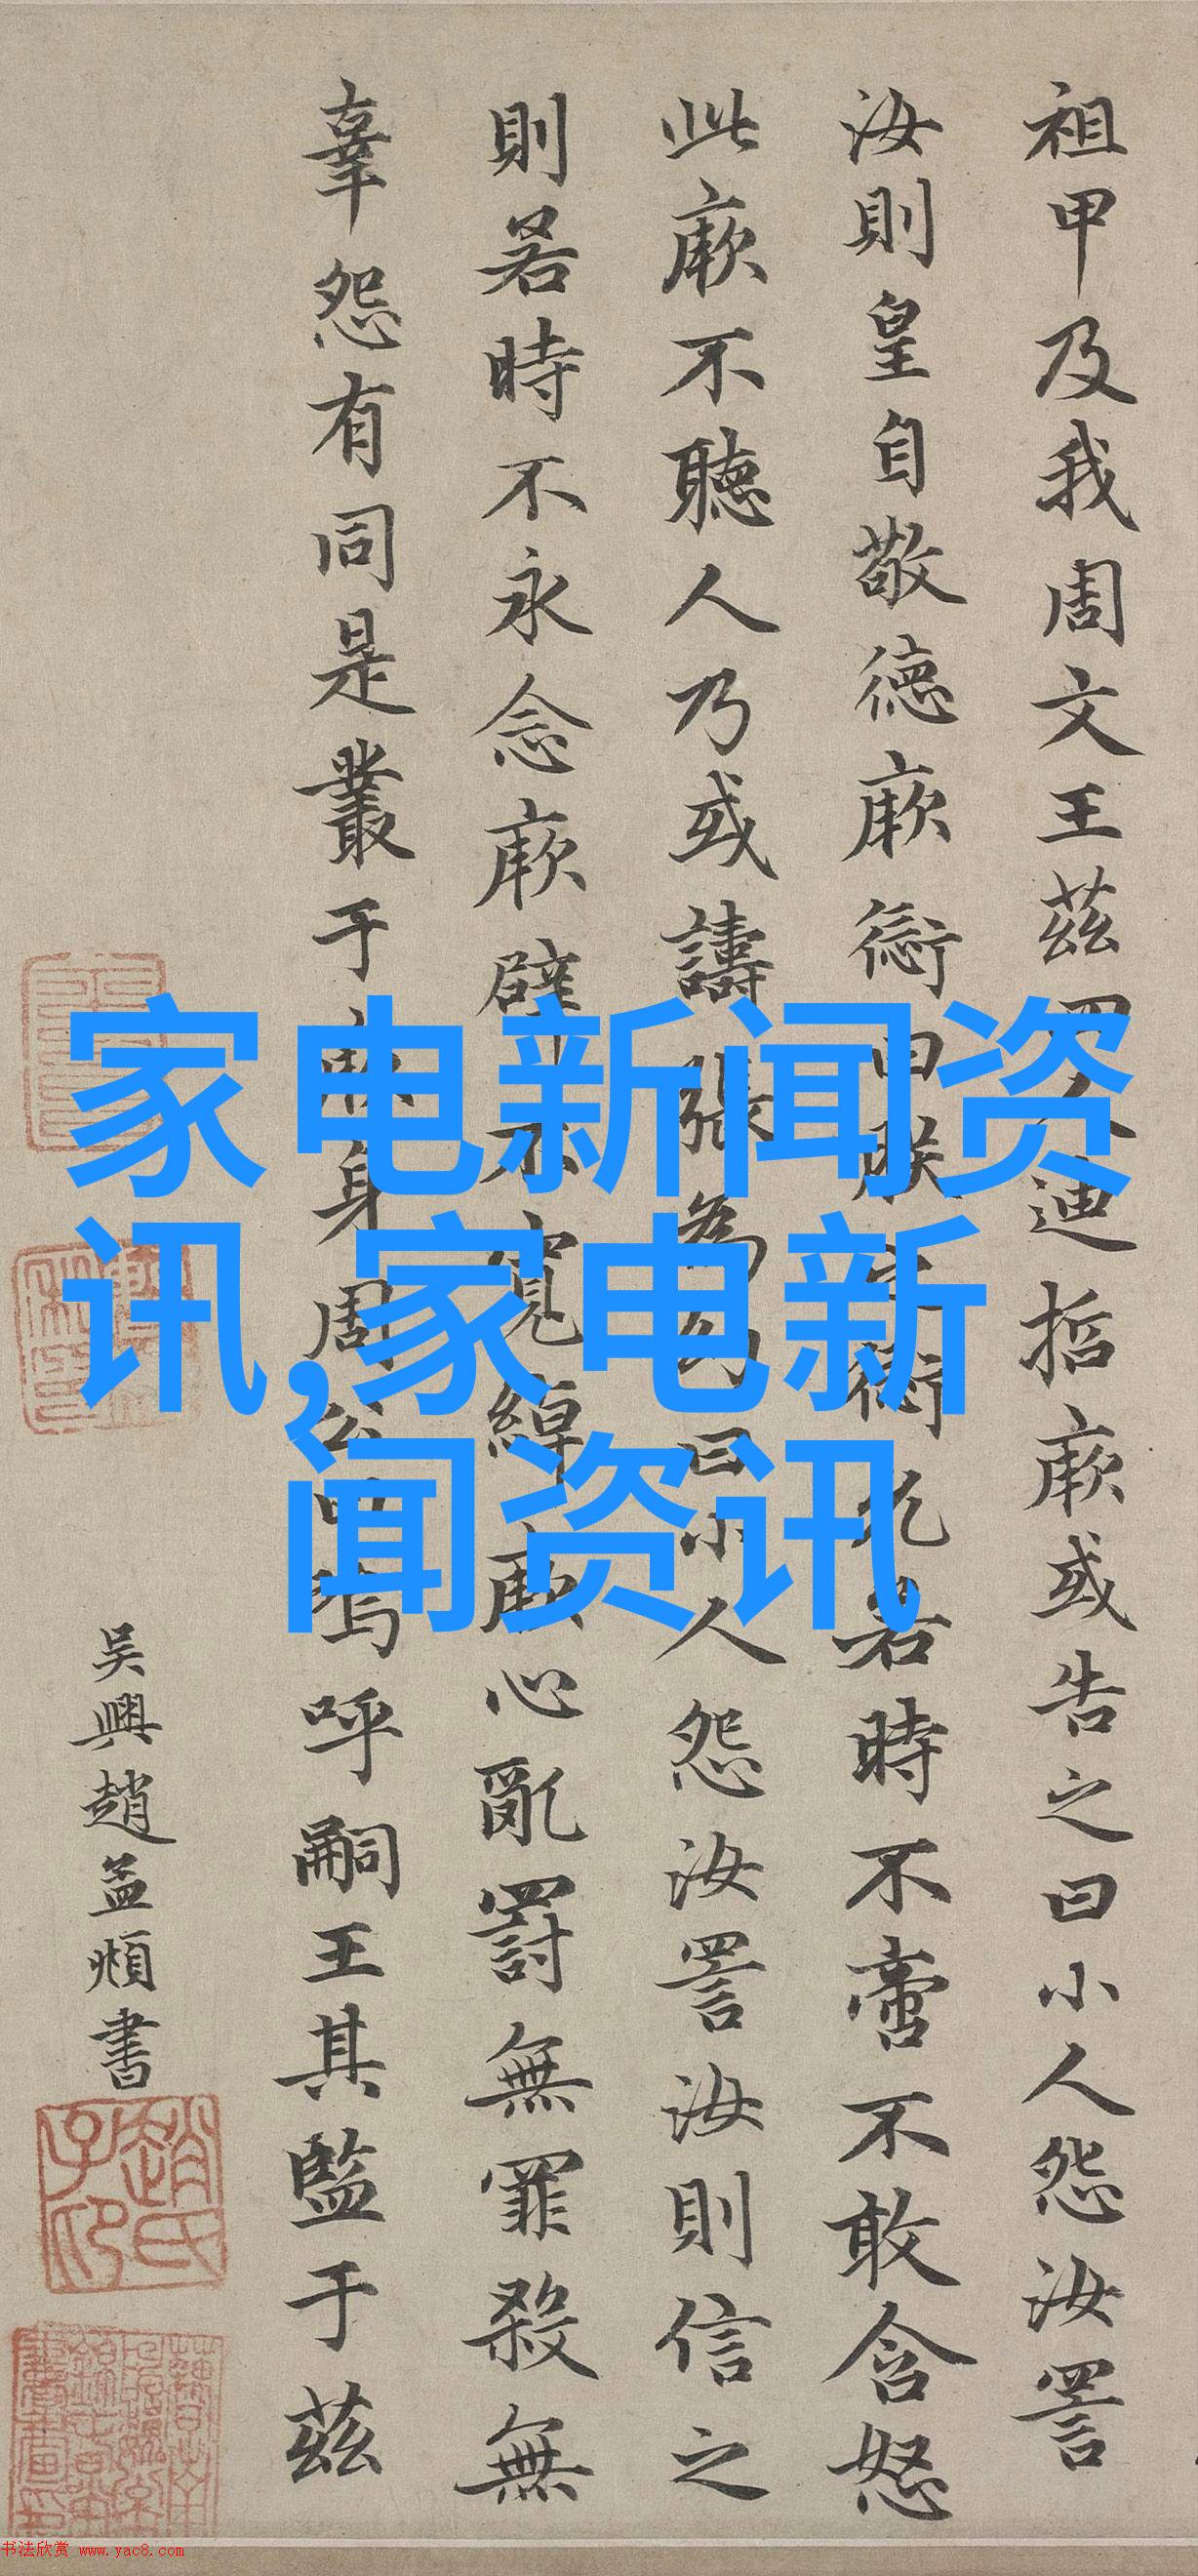 祖甲及我周文王茲四人迪哲厥或告之曰小人怨汝詈
汝則皇自敬德厥愆曰朕之愆允若時不啻不敢含怒
此厥不聽人乃或譸張為幻曰小人怨汝詈汝則信之
則若時不永念厥辟不寬綽厥心亂罰無罪殺無
辜怨有同是叢于厥身周公曰嗚呼嗣王其監于茲
吳興趙孟頫書
趙氏子印
家电新闻资
讯,家电新
闻资讯
书法欣赏 www.yac8.com